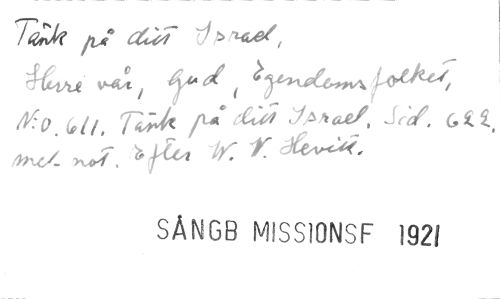 Tänk på ditt Israel,
Herre vår, Gud, Egendomsfolket,
N:o. 611. Tänk på ditt Israel. Sid. 622.
med not. Efter W. V. Hevitt.
SÅNGB MISSIONSF 1921